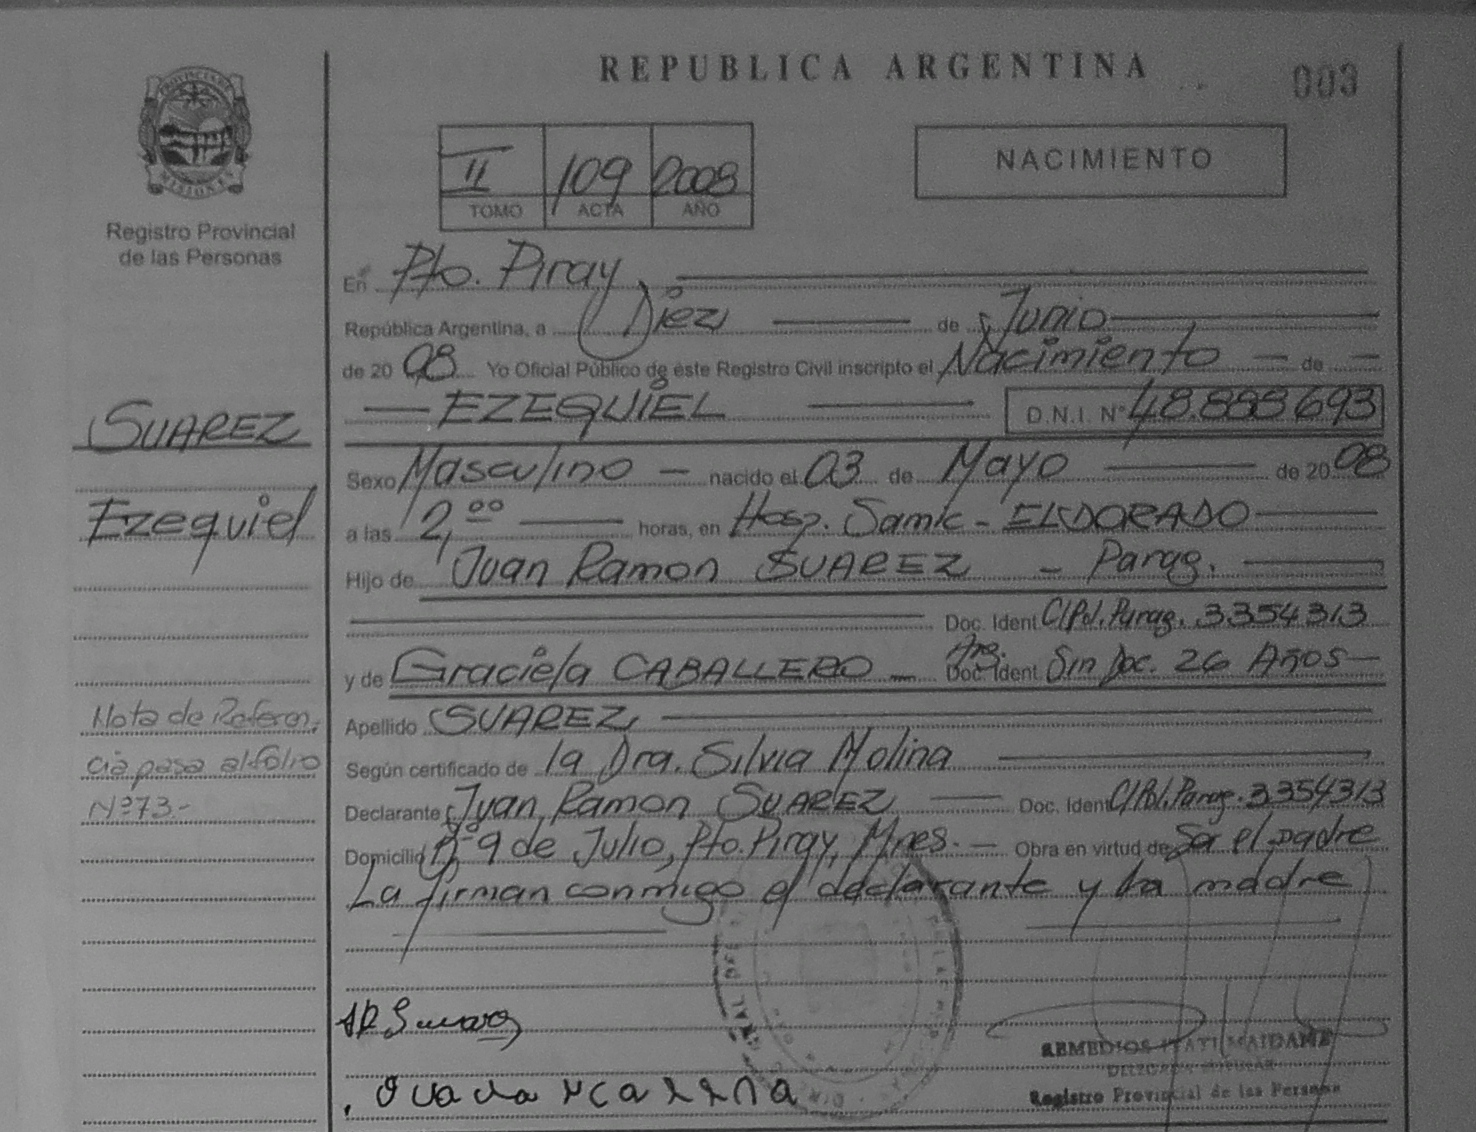 REPUBLICA ARGENTINA
003
PROVINCIA DE
MISIONES
Registro Provincial
de las Personas
II 109 2008
TOMO ACTA AÑO
NACIMIENTO
En Pto. Piray
República Argentina, a Diez de Junio
de 20 08 Yo Oficial Público de este Registro Civil inscripto el Nacimiento de
EZEQUIEL D.N.I. Nº 48.888693
SUAREZ
Ezequiel
Sexo Masculino nacido el 03 de Mayo de 20 08
a las 12,00 horas, en Hosp. Samic - ELDORADO
Hijo de Juan Ramon SUAREZ - Parag.
Doc. Ident. C/Pol. Parag. 3354313
y de Graciela CABALLERO Arg. Doc. Ident. Sin Doc. 26 Años
Apellido SUAREZ
Según certificado de la Dra. Silvia Molina
Declarante Juan Ramon SUAREZ Doc. Ident. C/Pol. Parag. 3354313
Domicilio Bº 9 de Julio, Pto. Piray, Mnes. Obra en virtud de Ser el padre
La firman conmigo el declarante y la madre
Nota de Referen
cia pasa al folio
Nº 73.-
REMEDIOS ITATI MAIDANA
DELEGADA TITULAR
Registro Provincial de las Personas